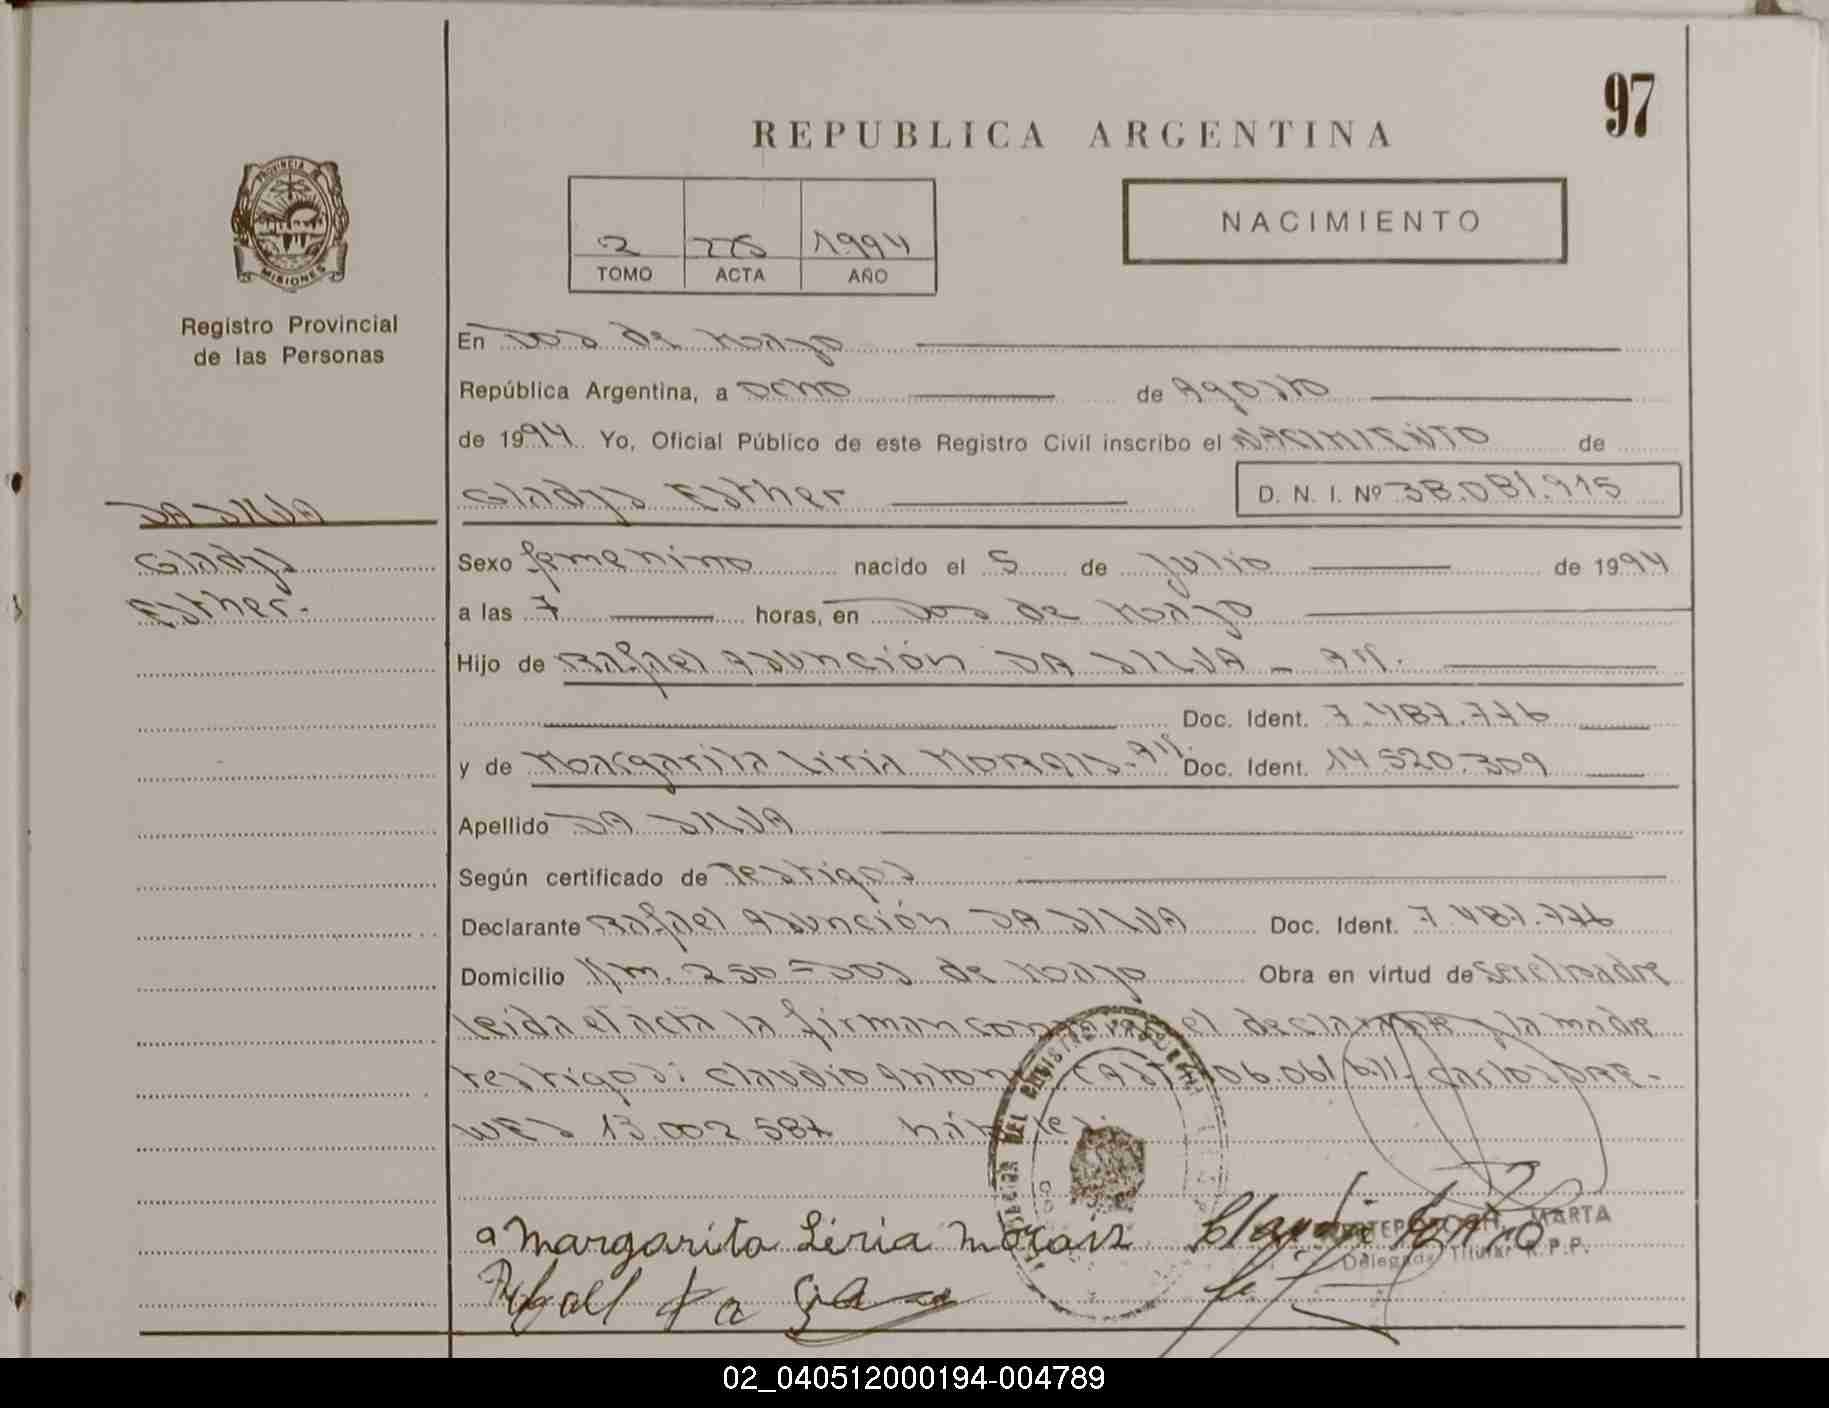 97
REPUBLICA ARGENTINA
NACIMIENTO
2 275 1994
TOMO ACTA AÑO
PROVINCIA DE
MISIONES
Registro Provincial
de las Personas
En Dos de Mayo
República Argentina, a Ocho de Agosto
de 1994. Yo, Oficial Público de este Registro Civil inscribo el NACIMIENTO de
DA SILVA
Gladys Esther D. N. I. Nº 38.081.915
Gladys
Esther.-
Sexo femenino nacido el 5 de Julio de 1994
a las 7 horas, en Dos de Mayo
Hijo de Rafael Asunción DA SILVA - Arg.
Doc. Ident. 7.487.776
y de Margarita Liria MORAIS - Arg. Doc. Ident. 14.520.309
Apellido DA SILVA
Según certificado de Testigos
Declarante Rafael Asunción DA SILVA Doc. Ident. 7.487.776
Domicilio Km. 250 - Dos de Mayo Obra en virtud de ser el padre
leida el acta la firman conmigo el declarante y la madre
testigos: Claudio Antonio Carlos DRE-
WES 13.002.587 hábiles.
Margarita Liria Morais Claudio
Rafael Da Silva
MARTA
Delegada Titular R.P.P.
02_040512000194-004789